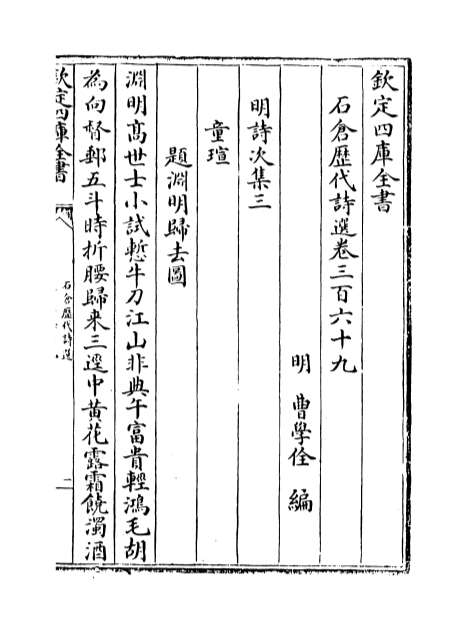 欽定四庫全書
石倉歷代詩選卷三百六十九
明 曹學佺 編
明詩次集三
童瑄
題淵明歸去圖
淵明髙世士小試慙牛刀江山非典午富貴輕鴻毛胡
為向督郵五斗時折腰歸来三逕中黄花露霜饒濁酒
欽定四庫全書
石倉歷代詩選